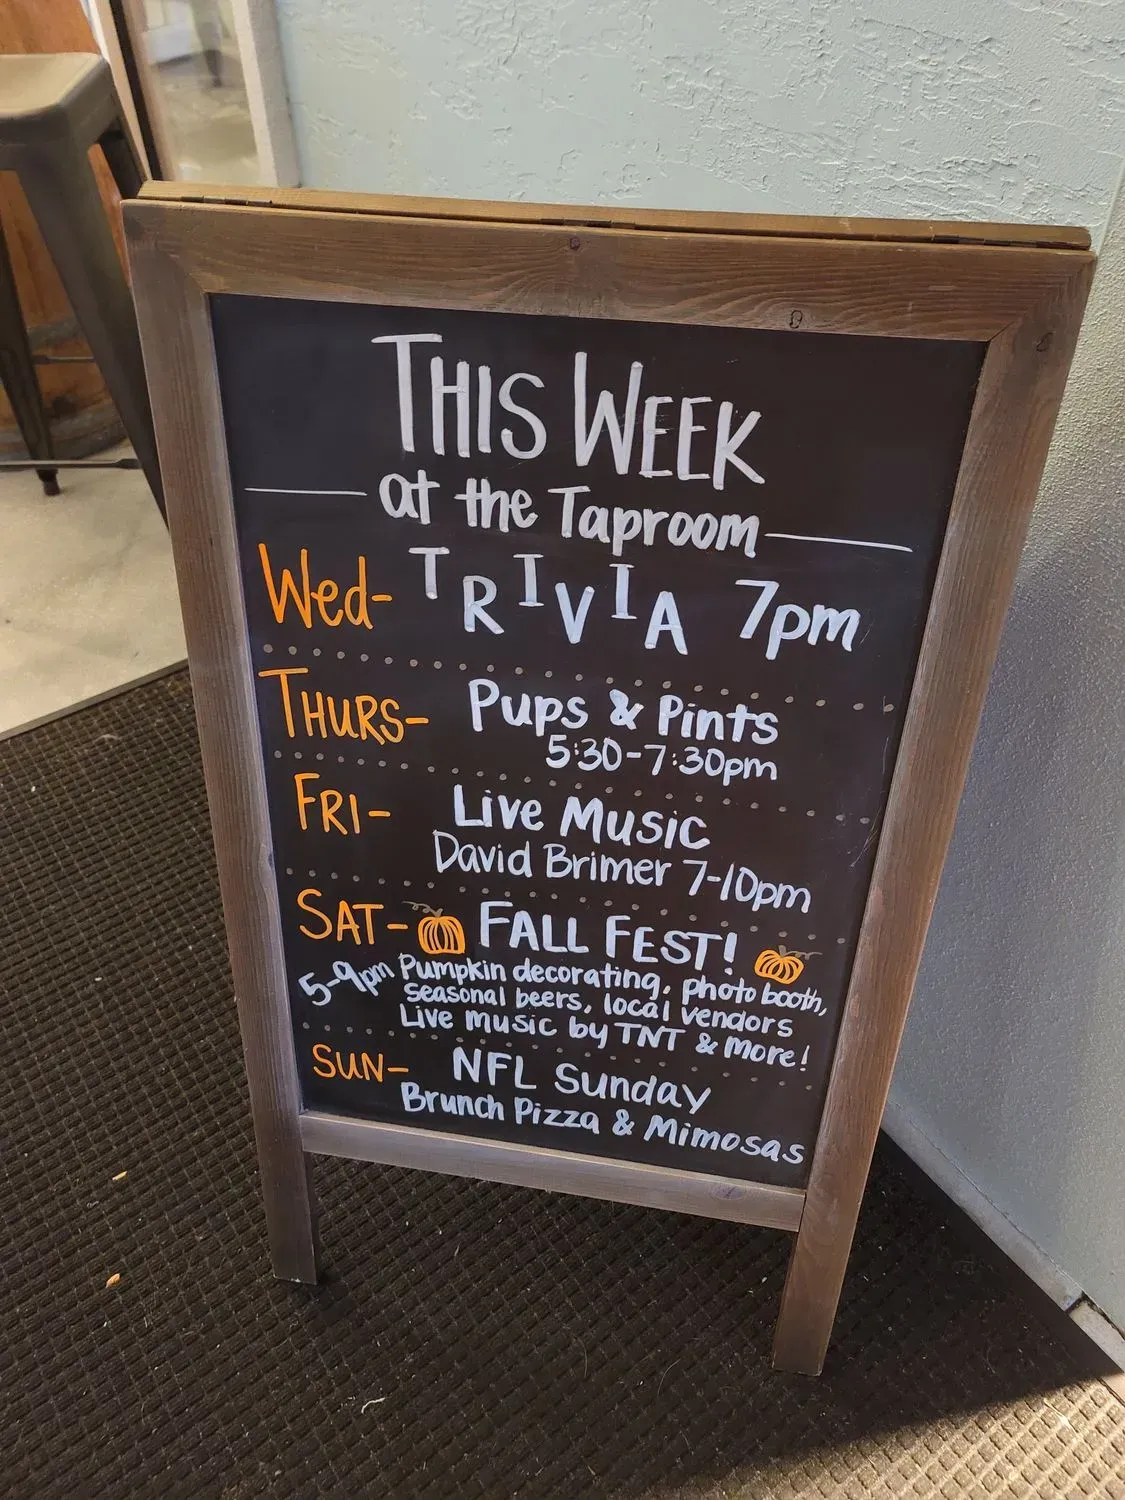 THIS WEEK
at the Taproom
Wed- TRIVIA 7pm
THURS- Pups & Pints
5:30-7:30pm
FRI- Live Music
David Brimer 7-10pm
SAT- FALL FEST!
5-9pm Pumpkin decorating, photo booth,
seasonal beers, local vendors
Live music by TNT & more!
SUN- NFL Sunday
Brunch Pizza & Mimosas